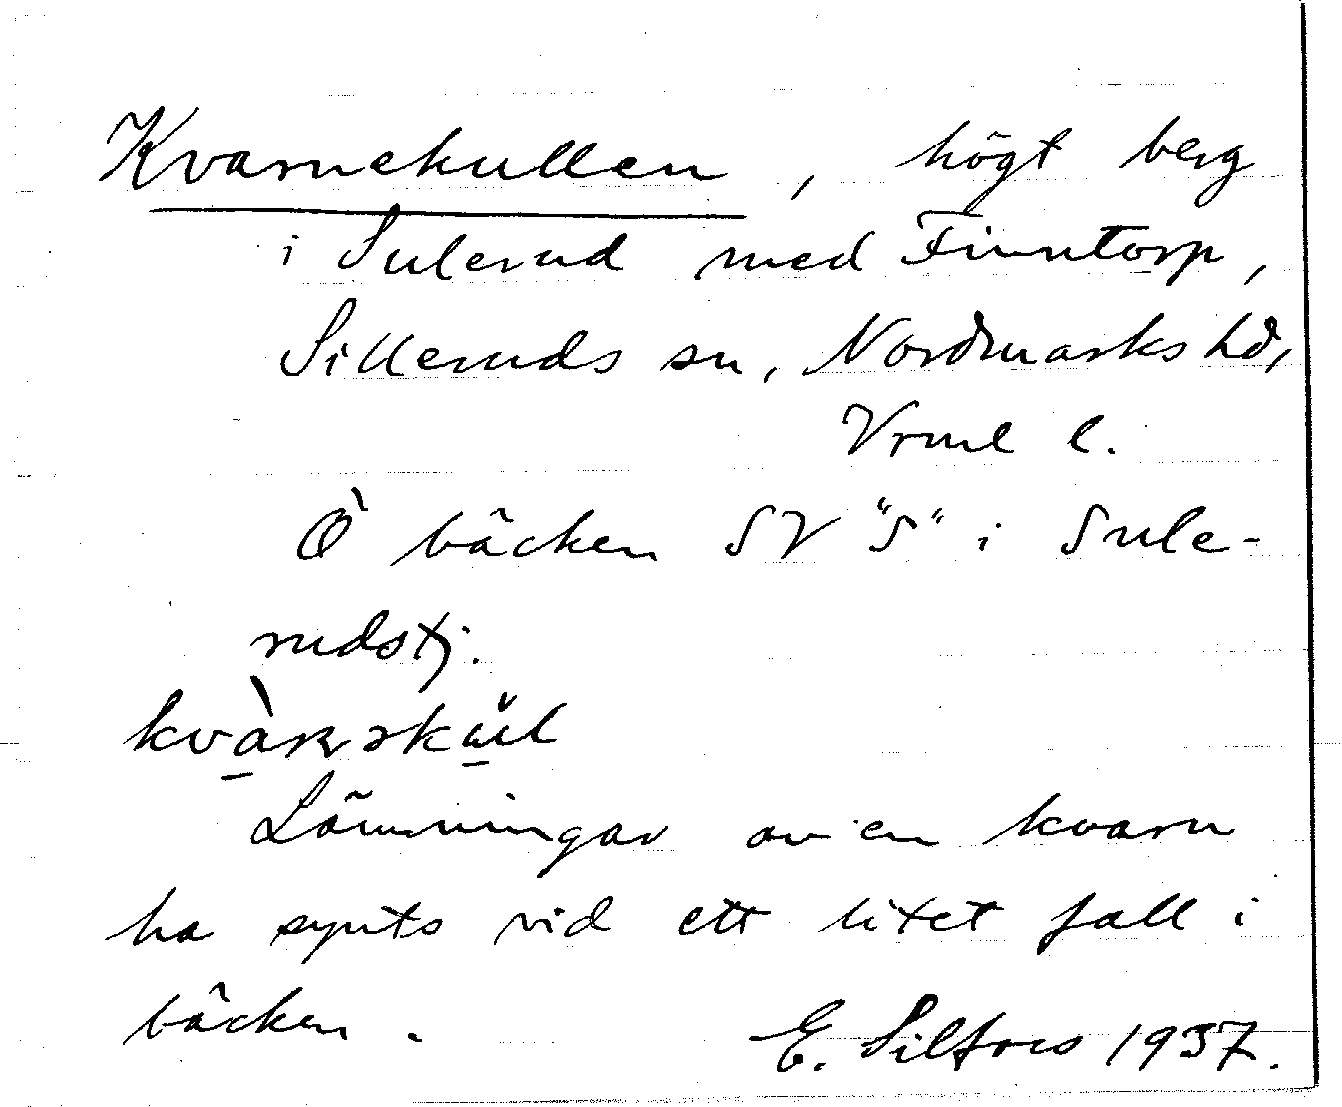 Kvarnekullen, högt berg
i Sulerud med Finntorp,
Silleruds sn, Nordmarks hd,
Vrml l.
Ö bäcken SV "S" i Sule-
rudstj.
Lämningar av en kvarn
ha synts vid ett litet fall i
bäcken.
E. Silfors 1937.